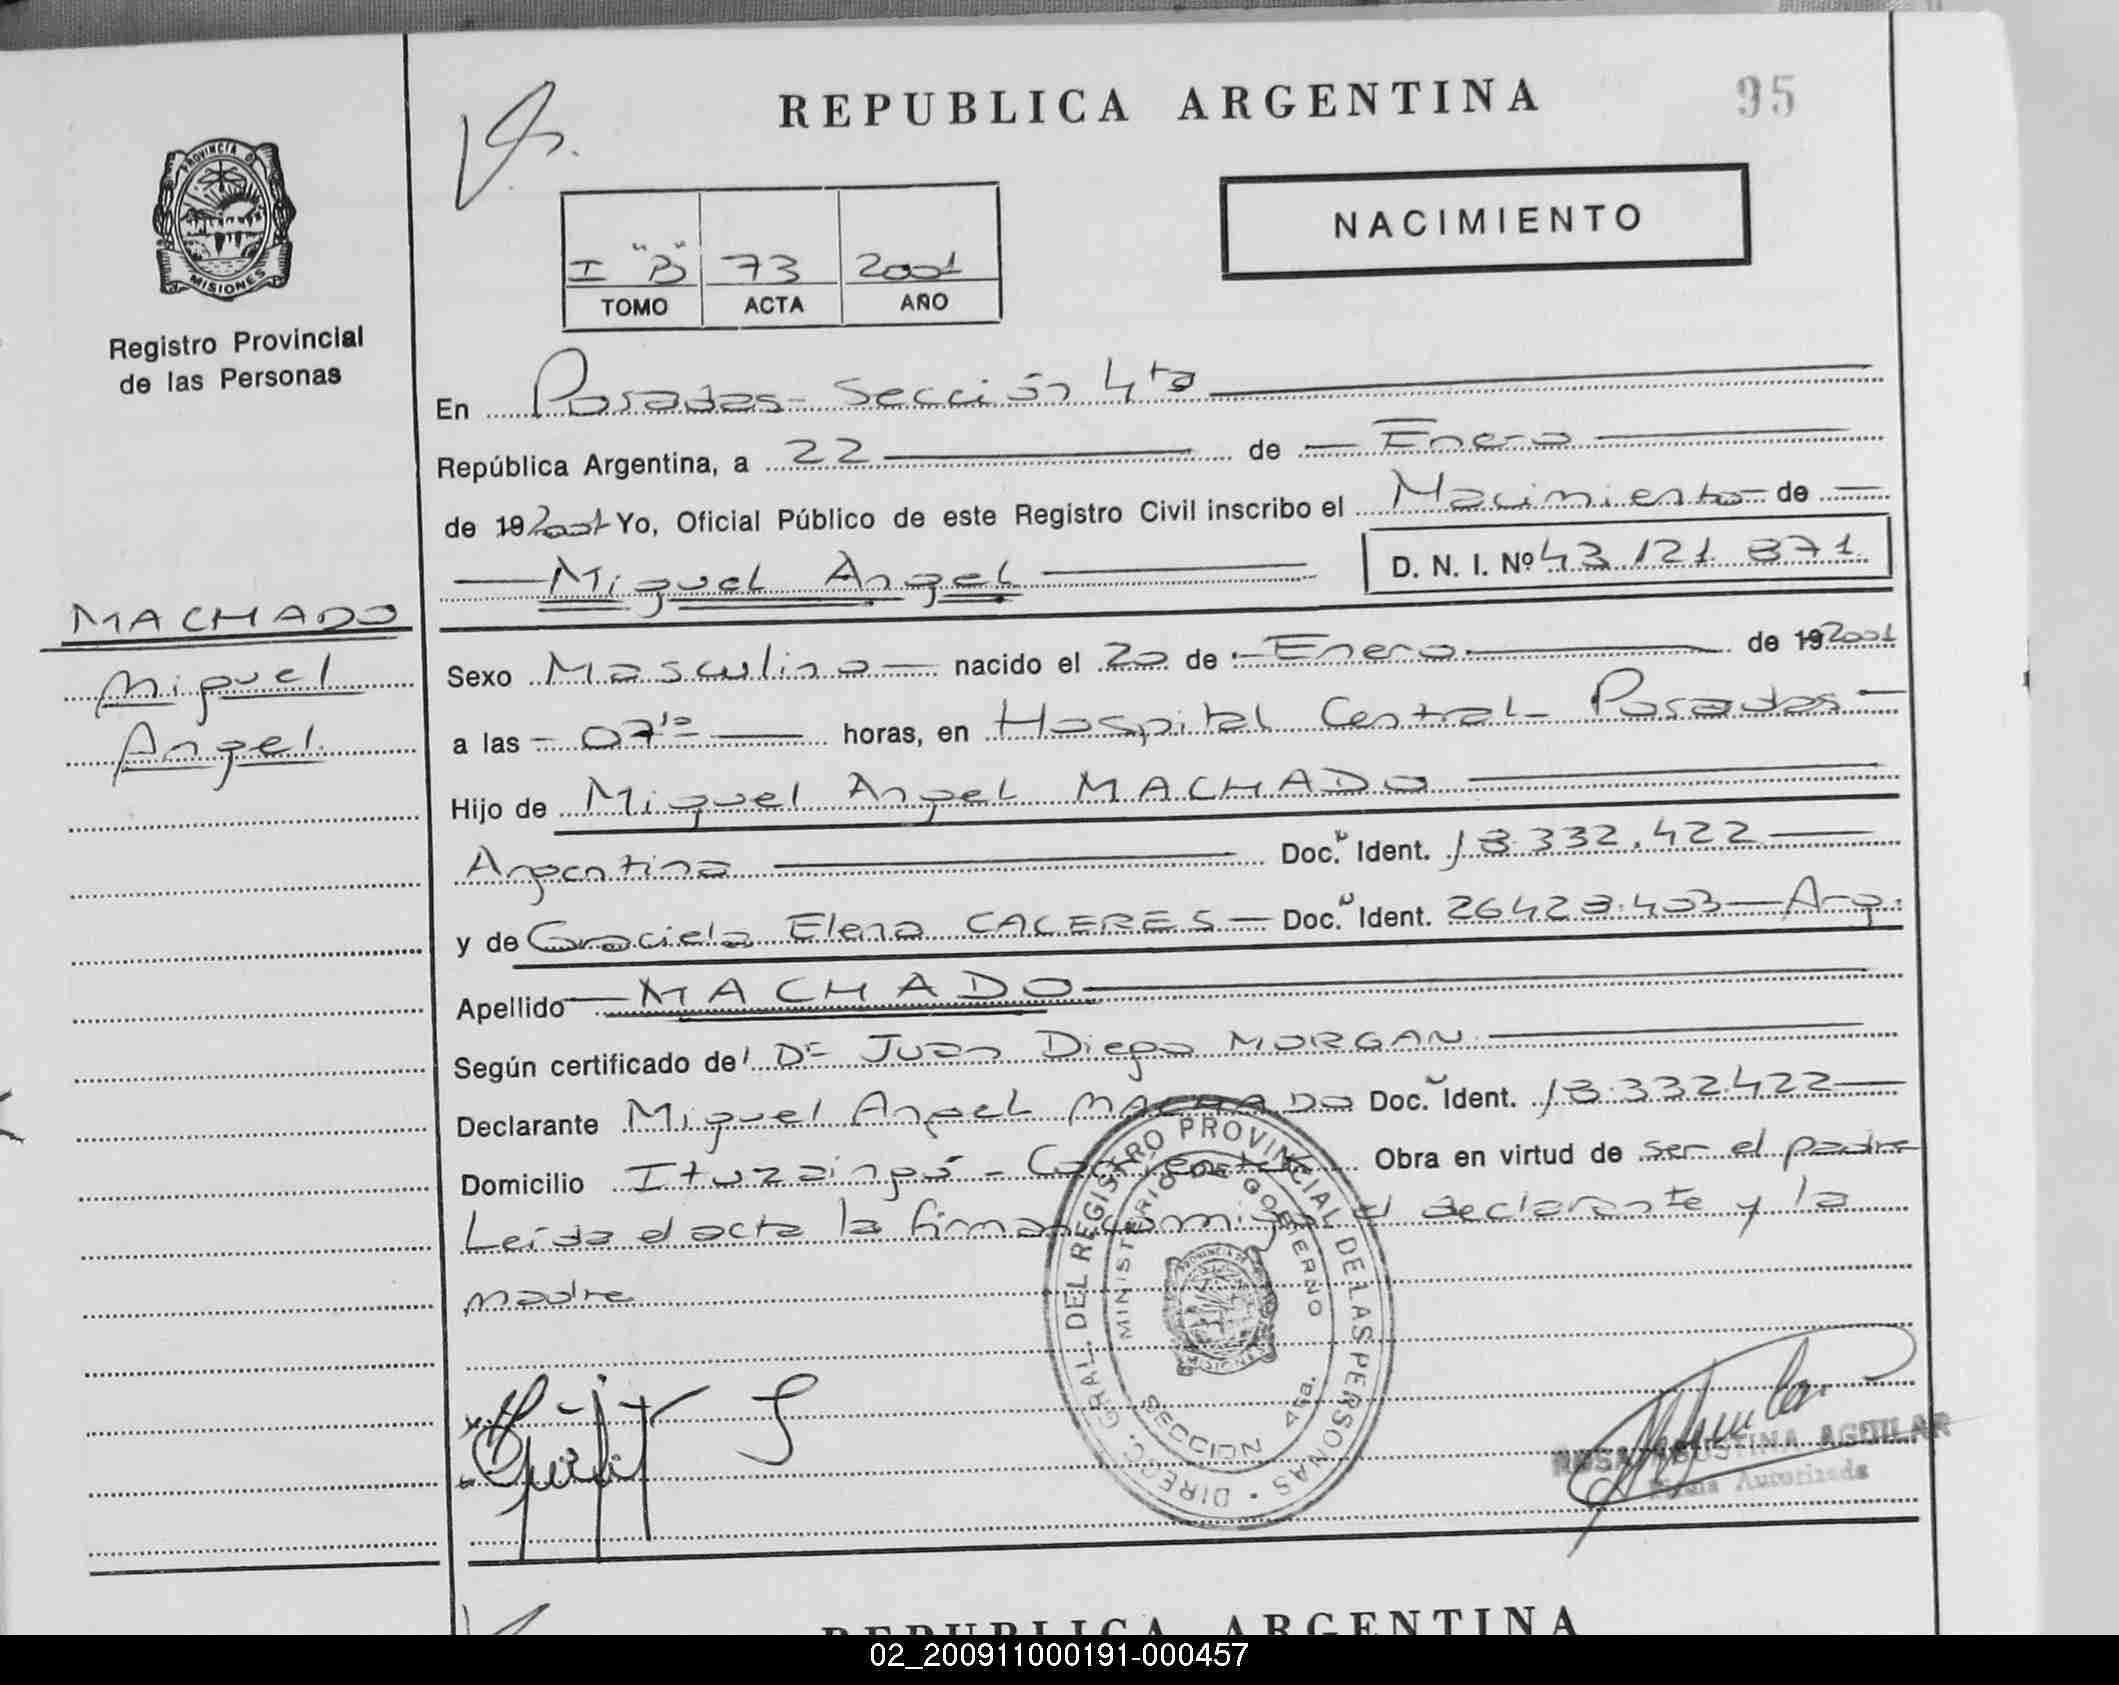 REPUBLICA ARGENTINA
95
PROVINCIA DE
MISIONES
Registro Provincial
de las Personas
NACIMIENTO
I "B" 73 2001
TOMO ACTA AÑO
En Posadas - Sección 4ta
República Argentina, a 22 de Enero
de 192001 Yo, Oficial Público de este Registro Civil inscribo el Nacimiento de
Miguel Angel
D. N. I. Nº 43 121 871
MACHADO
Miguel
Angel
Sexo Masculino nacido el 20 de Enero de 192001
a las 07 10 horas, en Hospital Central - Posadas
Hijo de Miguel Angel MACHADO
Argentina Doc. Ident. 18.332.422
y de Graciela Elena CACERES Doc. Ident. 26423.403 Arg.
Apellido MACHADO
Según certificado de Dr Juan Diego MORGAN
Declarante Miguel Angel MACHADO Doc. Ident. 18.332.422
Domicilio Ituzaingó - Corrientes Obra en virtud de ser el padre
Leída el acta la firman conmigo el declarante y la
madre
DIREC. GRAL. DEL REGISTRO PROVINCIAL DE LAS PERSONAS
MINISTERIO DE GOBIERNO
PROVINCIA DE
MISIONES
SECCION 4ta.
ROSA AGUSTINA AGUILAR
Firma Autorizada
REPUBLICA ARGENTINA
02_200911000191-000457